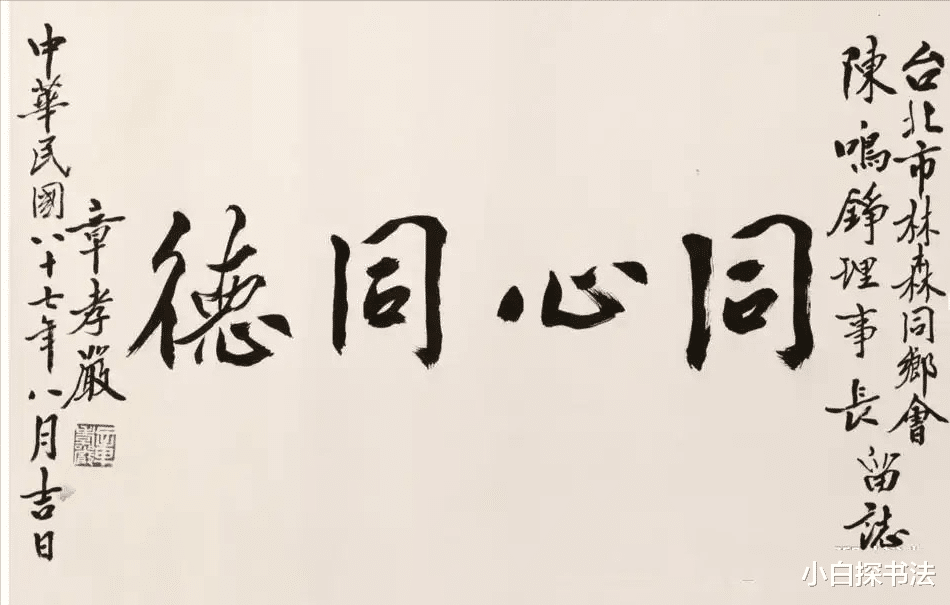 台北市林森同鄉會
陳鳴錚理事長留誌
同心同德
章孝嚴
中華民國八十七年八月吉日
小白探书法